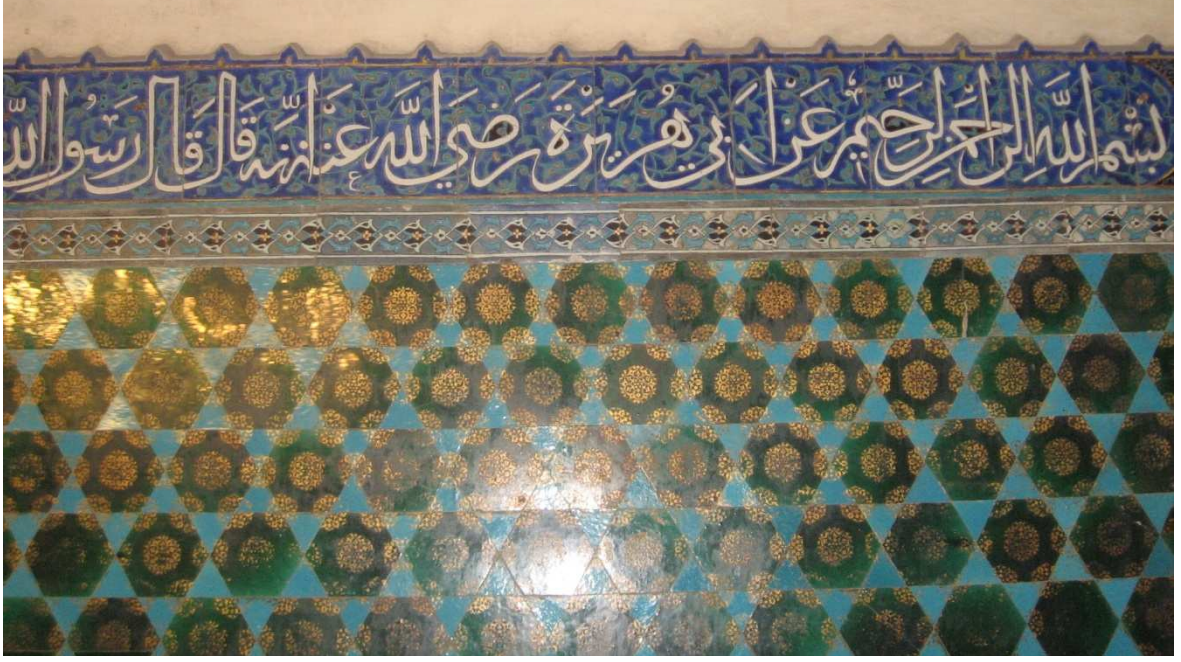 بسم الله الرحمن الرحيم عن أبي هريرة رضي الله عنه أنه قال قال رسول الله